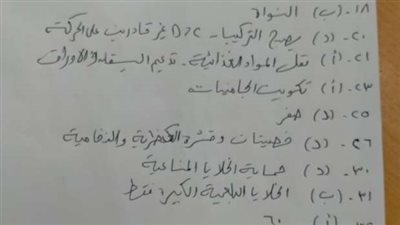 ١٨. (ب) النواة
٢٠. (د) يصبح التركيبان C و D غير قادرين على الحركة
٢١. (أ) نقل المواد الغذائية. تدعيم السيقان والأوراق
٢٣. (أ) تكوين الجاميتات
٢٥. (د) صفر
٢٦. (د) قصيبات وقشرة الكظرية والنخامية
٣٠. (د) حماية الخلايا المناعية
٣١. (ب) الخلايا البلعمية الكبيرة فقط
(أ) ٦٠